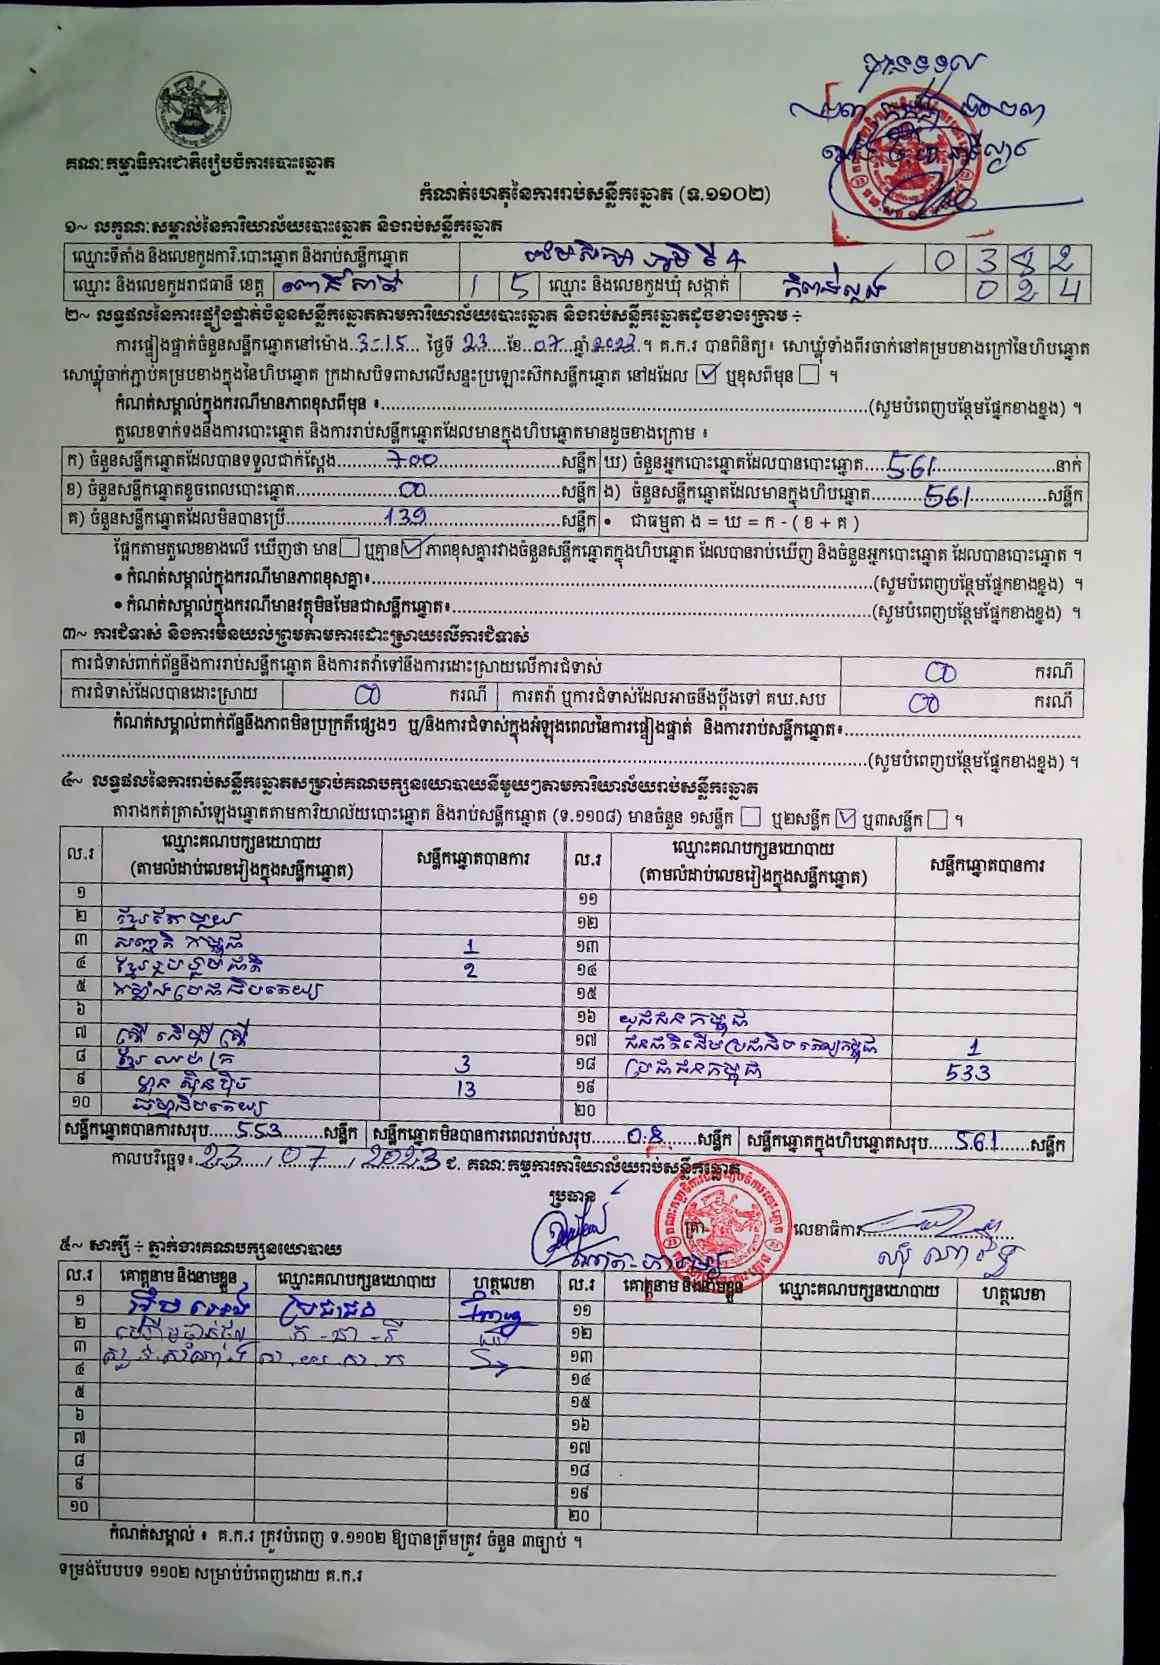 បានទទួល
គណៈកម្មាធិការជាតិរៀបចំការបោះឆ្នោត
កំណត់ហេតុនៃការរាប់សន្លឹកឆ្នោត (ទ.១១០២)
១~ លក្ខណៈសម្គាល់នៃការិយាល័យបោះឆ្នោត និងរាប់សន្លឹកឆ្នោត
ឈ្មោះទីតាំង និងលេខកូដការិ.បោះឆ្នោត និងរាប់សន្លឹកឆ្នោត ភូមិ ទី 4 0382
ឈ្មោះ និងលេខកូដរាជធានី ខេត្ត ពោធិ៍សាត់ 15 ឈ្មោះ និងលេខកូដឃុំ សង្កាត់ កំពង់ហ្លួង 024
២~ លទ្ធផលនៃការផ្ទៀងផ្ទាត់ចំនួនសន្លឹកឆ្នោតតាមការិយាល័យបោះឆ្នោត និងរាប់សន្លឹកឆ្នោតដូចខាងក្រោម ÷
ការផ្ទៀងផ្ទាត់ចំនួនសន្លឹកឆ្នោតនៅម៉ោង 3:15 ថ្ងៃទី 23 ខែ 07 ឆ្នាំ 2023 ។ គ.ក.រ បានពិនិត្យ៖ សោឃ្លុំទាំងពីរចាក់នៅគម្របខាងក្រៅនៃហិបឆ្នោត
សោឃ្លុំចាក់ភ្ជាប់គម្របខាងក្នុងនៃហិបឆ្នោត ក្រដាសបិទពាសលើសន្ទះប្រឡោះស៊កសន្លឹកឆ្នោត នៅដដែល ☑ ឬខុសពីមុន ☐ ។
កំណត់សម្គាល់ក្នុងករណីមានភាពខុសពីមុន ៖ (សូមបំពេញបន្ថែមផ្នែកខាងខ្នង) ។
តួលេខទាក់ទងនឹងការបោះឆ្នោត និងការរាប់សន្លឹកឆ្នោតដែលមានក្នុងហិបឆ្នោតមានដូចខាងក្រោម ៖
ក) ចំនួនសន្លឹកឆ្នោតដែលបានទទួលជាក់ស្តែង 700 សន្លឹក ឃ) ចំនួនអ្នកបោះឆ្នោតដែលបានបោះឆ្នោត 561 នាក់
ខ) ចំនួនសន្លឹកឆ្នោតខូចពេលបោះឆ្នោត 00 សន្លឹក ង) ចំនួនសន្លឹកឆ្នោតដែលមានក្នុងហិបឆ្នោត 561 សន្លឹក
គ) ចំនួនសន្លឹកឆ្នោតដែលមិនបានប្រើ 139 សន្លឹក • ជាធម្មតា ង = ឃ = ក - ( ខ + គ )
ផ្អែកតាមតួលេខខាងលើ ឃើញថា មាន ☐ ឬគ្មាន ☑ ភាពខុសគ្នារវាងចំនួនសន្លឹកឆ្នោតក្នុងហិបឆ្នោត ដែលបានរាប់ឃើញ និងចំនួនអ្នកបោះឆ្នោត ដែលបានបោះឆ្នោត ។
• កំណត់សម្គាល់ក្នុងករណីមានភាពខុសគ្នា៖ (សូមបំពេញបន្ថែមផ្នែកខាងខ្នង) ។
• កំណត់សម្គាល់ក្នុងករណីមានវត្ថុមិនមែនជាសន្លឹកឆ្នោត៖ (សូមបំពេញបន្ថែមផ្នែកខាងខ្នង) ។
៣~ ការជំទាស់ និងការមិនយល់ព្រមតាមការដោះស្រាយលើការជំទាស់
ការជំទាស់ពាក់ព័ន្ធនឹងការរាប់សន្លឹកឆ្នោត និងការតវ៉ាទៅនឹងការដោះស្រាយលើការជំទាស់ 00 ករណី
ការជំទាស់ដែលបានដោះស្រាយ 00 ករណី ការតវ៉ា ឬការជំទាស់ដែលអាចនឹងប្តឹងទៅ គឃ.សប 00 ករណី
កំណត់សម្គាល់ពាក់ព័ន្ធនឹងភាពមិនប្រក្រតីផ្សេងៗ ឬ/និងការជំទាស់ក្នុងអំឡុងពេលនៃការផ្ទៀងផ្ទាត់ និងការរាប់សន្លឹកឆ្នោត៖
(សូមបំពេញបន្ថែមផ្នែកខាងខ្នង) ។
៤~ លទ្ធផលនៃការរាប់សន្លឹកឆ្នោតសម្រាប់គណបក្សនយោបាយនីមួយៗតាមការិយាល័យរាប់សន្លឹកឆ្នោត
តារាងកត់ត្រាសំឡេងឆ្នោតតាមការិយាល័យបោះឆ្នោត និងរាប់សន្លឹកឆ្នោត (ទ.១១០៨) មានចំនួន ១សន្លឹក ☐ ឬ២សន្លឹក ☑ ឬ៣សន្លឹក ☐ ។
ល.រ ឈ្មោះគណបក្សនយោបាយ (តាមលំដាប់លេខរៀងក្នុងសន្លឹកឆ្នោត) សន្លឹកឆ្នោតបានការ ល.រ ឈ្មោះគណបក្សនយោបាយ (តាមលំដាប់លេខរៀងក្នុងសន្លឹកឆ្នោត) សន្លឹកឆ្នោតបានការ
១ ១១
២ ខ្មែរតែមួយ ១២
៣ សញ្ជាតិ កម្ពុជា 1 ១៣
៤ ខ្មែររួបរួមជាតិ 2 ១៤
៥ កម្លាំងប្រជាធិបតេយ្យ ១៥
៦ ១៦ យុវជនកម្ពុជា
៧ ស្ត្រី ដើម្បី ស្ត្រី ១៧ ជនជាតិដើមប្រជាធិបតេយ្យកម្ពុជា 1
៨ 3 ១៨ ប្រជាជនកម្ពុជា 533
៩ ហ្វ៊ុន ស៊ិនប៉ិច 13 ១៩
១០ ធម្មាធិបតេយ្យ ២០
សន្លឹកឆ្នោតបានការសរុប 553 សន្លឹក សន្លឹកឆ្នោតមិនបានការពេលរាប់សរុប 08 សន្លឹក សន្លឹកឆ្នោតក្នុងហិបឆ្នោតសរុប 561 សន្លឹក
កាលបរិច្ឆេទ៖ 23 / 07 / 2023 ជ. គណៈកម្មការការិយាល័យរាប់សន្លឹកឆ្នោត
ប្រធាន
ត្រា លេខាធិការ
៥~ សាក្សី ÷ ភ្នាក់ងារគណបក្សនយោបាយ
ល.រ គោត្តនាម និងនាមខ្លួន ឈ្មោះគណបក្សនយោបាយ ហត្ថលេខា ល.រ គោត្តនាម និងនាមខ្លួន ឈ្មោះគណបក្សនយោបាយ ហត្ថលេខា
១ ប្រជាជន ១១
២ ១២
៣ ១៣
៤ ១៤
៥ ១៥
៦ ១៦
៧ ១៧
៨ ១៨
៩ ១៩
១០ ២០
កំណត់សម្គាល់ ៖ គ.ក.រ ត្រូវបំពេញ ទ.១១០២ ឱ្យបានត្រឹមត្រូវ ចំនួន ៣ច្បាប់ ។
ទម្រង់បែបបទ ១១០២ សម្រាប់បំពេញដោយ គ.ក.រ